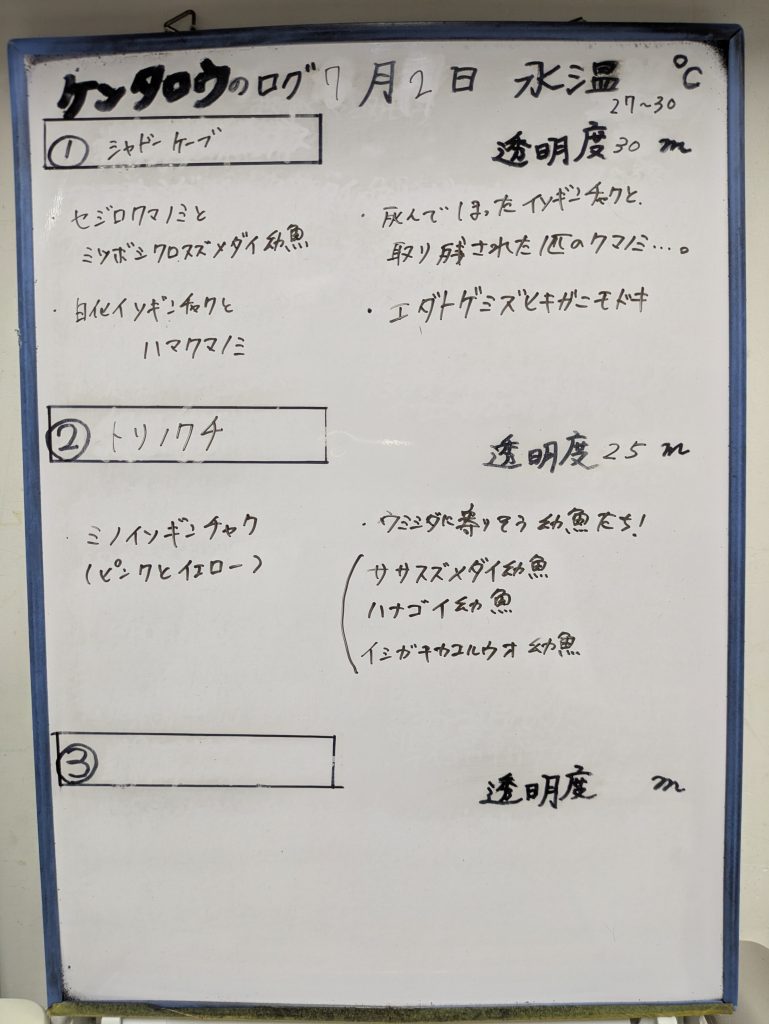 ケンタロウのログ 7月2日 水温 ℃
27~30
① シャドーケーブ
透明度 30 m
・セジロクマノミと
ミツボシクロスズメダイ幼魚
・白化イソギンチャクと
ハマクマノミ
・死んでしまったイソギンチャクと、
取り残された1匹のクマノミ…。
・エダトゲミズヒキガニモドキ
② トリノクチ
透明度 25 m
・ミノイソギンチャク
(ピンクとイエロー)
・ウミシダに寄りそう幼魚たち!
(ササスズメダイ幼魚
ハナゴイ幼魚
イシガキカエルウオ幼魚
③
透明度 m